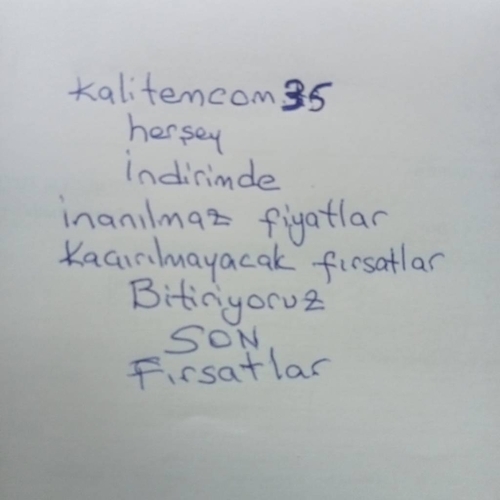 kalitemcom35
herşey
indirimde
inanılmaz fiyatlar
Kaçırılmayacak fırsatlar
Bitiriyoruz
SON
Fırsatlar